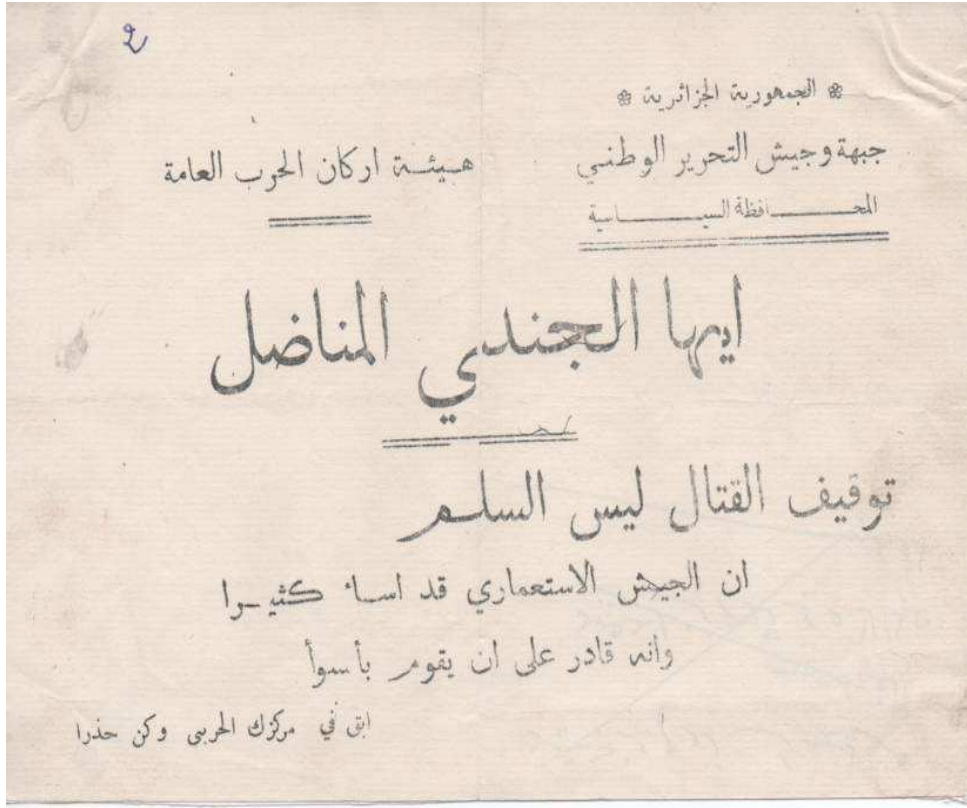 2
❀ الجمهورية الجزائرية ❀
جبهة وجيش التحرير الوطني
هيئة اركان الحرب العامة
المحافظة السياسية
ايها الجندي المناضل
توقيف القتال ليس السلم
ان الجيش الاستعماري قد اساء كثيرا
وانه قادر على ان يقوم بأسوأ
ابق في مركزك الحربي وكن حذرا